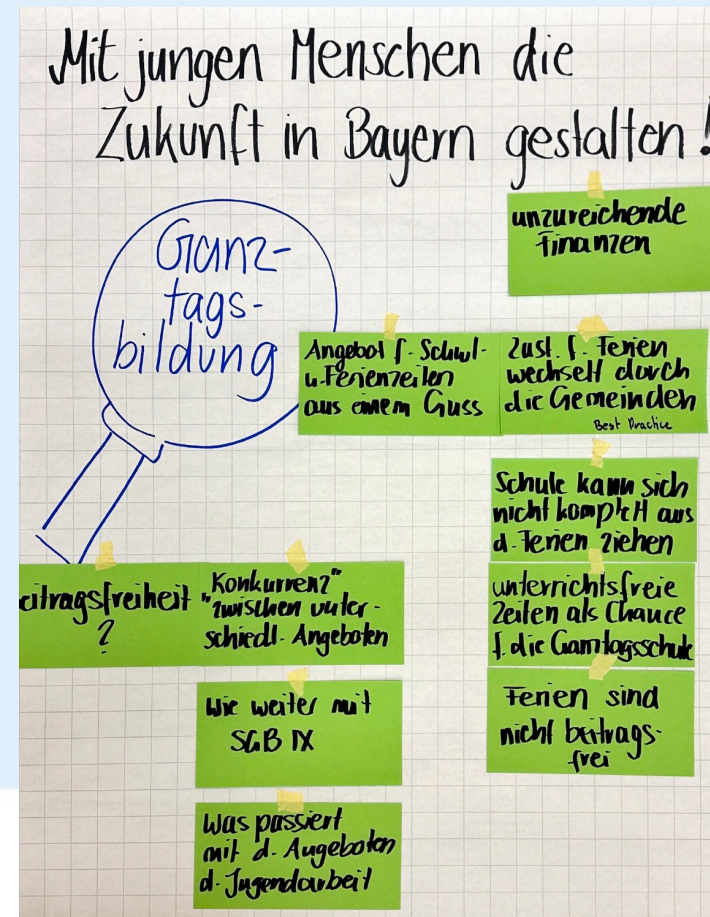 Mit jungen Menschen die
Zukunft in Bayern gestalten!
Ganz-
tags-
bildung
unzureichende
Finanzen
Angebot f. Schul-
u. Ferienzeiten
aus einem Guss
Zust. f. Ferien
wechselt durch
die Gemeinden
Best Practice
Schule kann sich
nicht komplett aus
d. Ferien ziehen
unterrichtsfreie
Zeiten als Chance
f. die Ganztagsschule
Ferien sind
nicht beitrags-
frei
eitragsfreiheit
?
"Konkurrenz"
zwischen unter-
schiedl. Angeboten
Wie weiter mit
SGB IX
Was passiert
mit d. Angeboten
d. Jugendarbeit